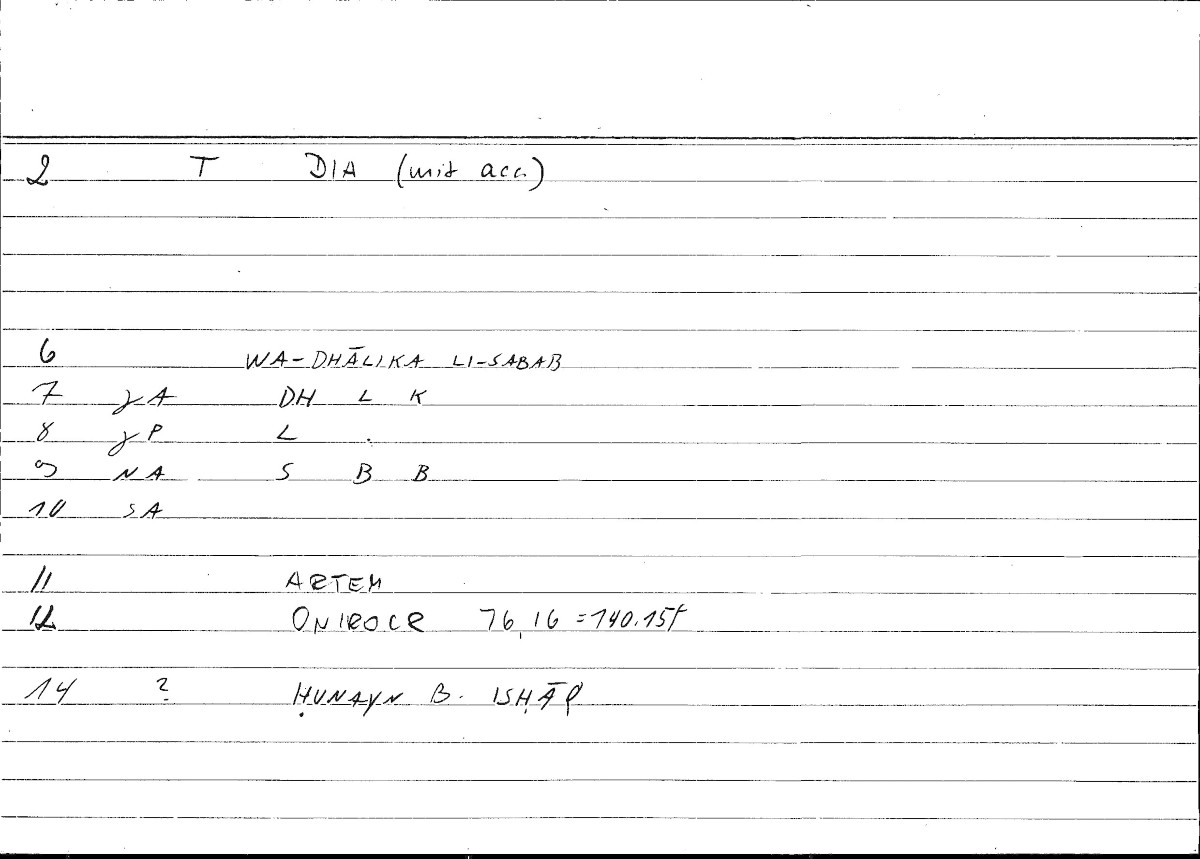 2 T DIA (mit acc.)
6 WA-DHĀLIKA LI-SABAB
7 γA DH L K
8 γP L .
9 NA S B B
10 SA
11 ARTEM
12 ONIROCR 76,16 = 140.15f
14 ? ḤUNAYN B. ISḤĀQ